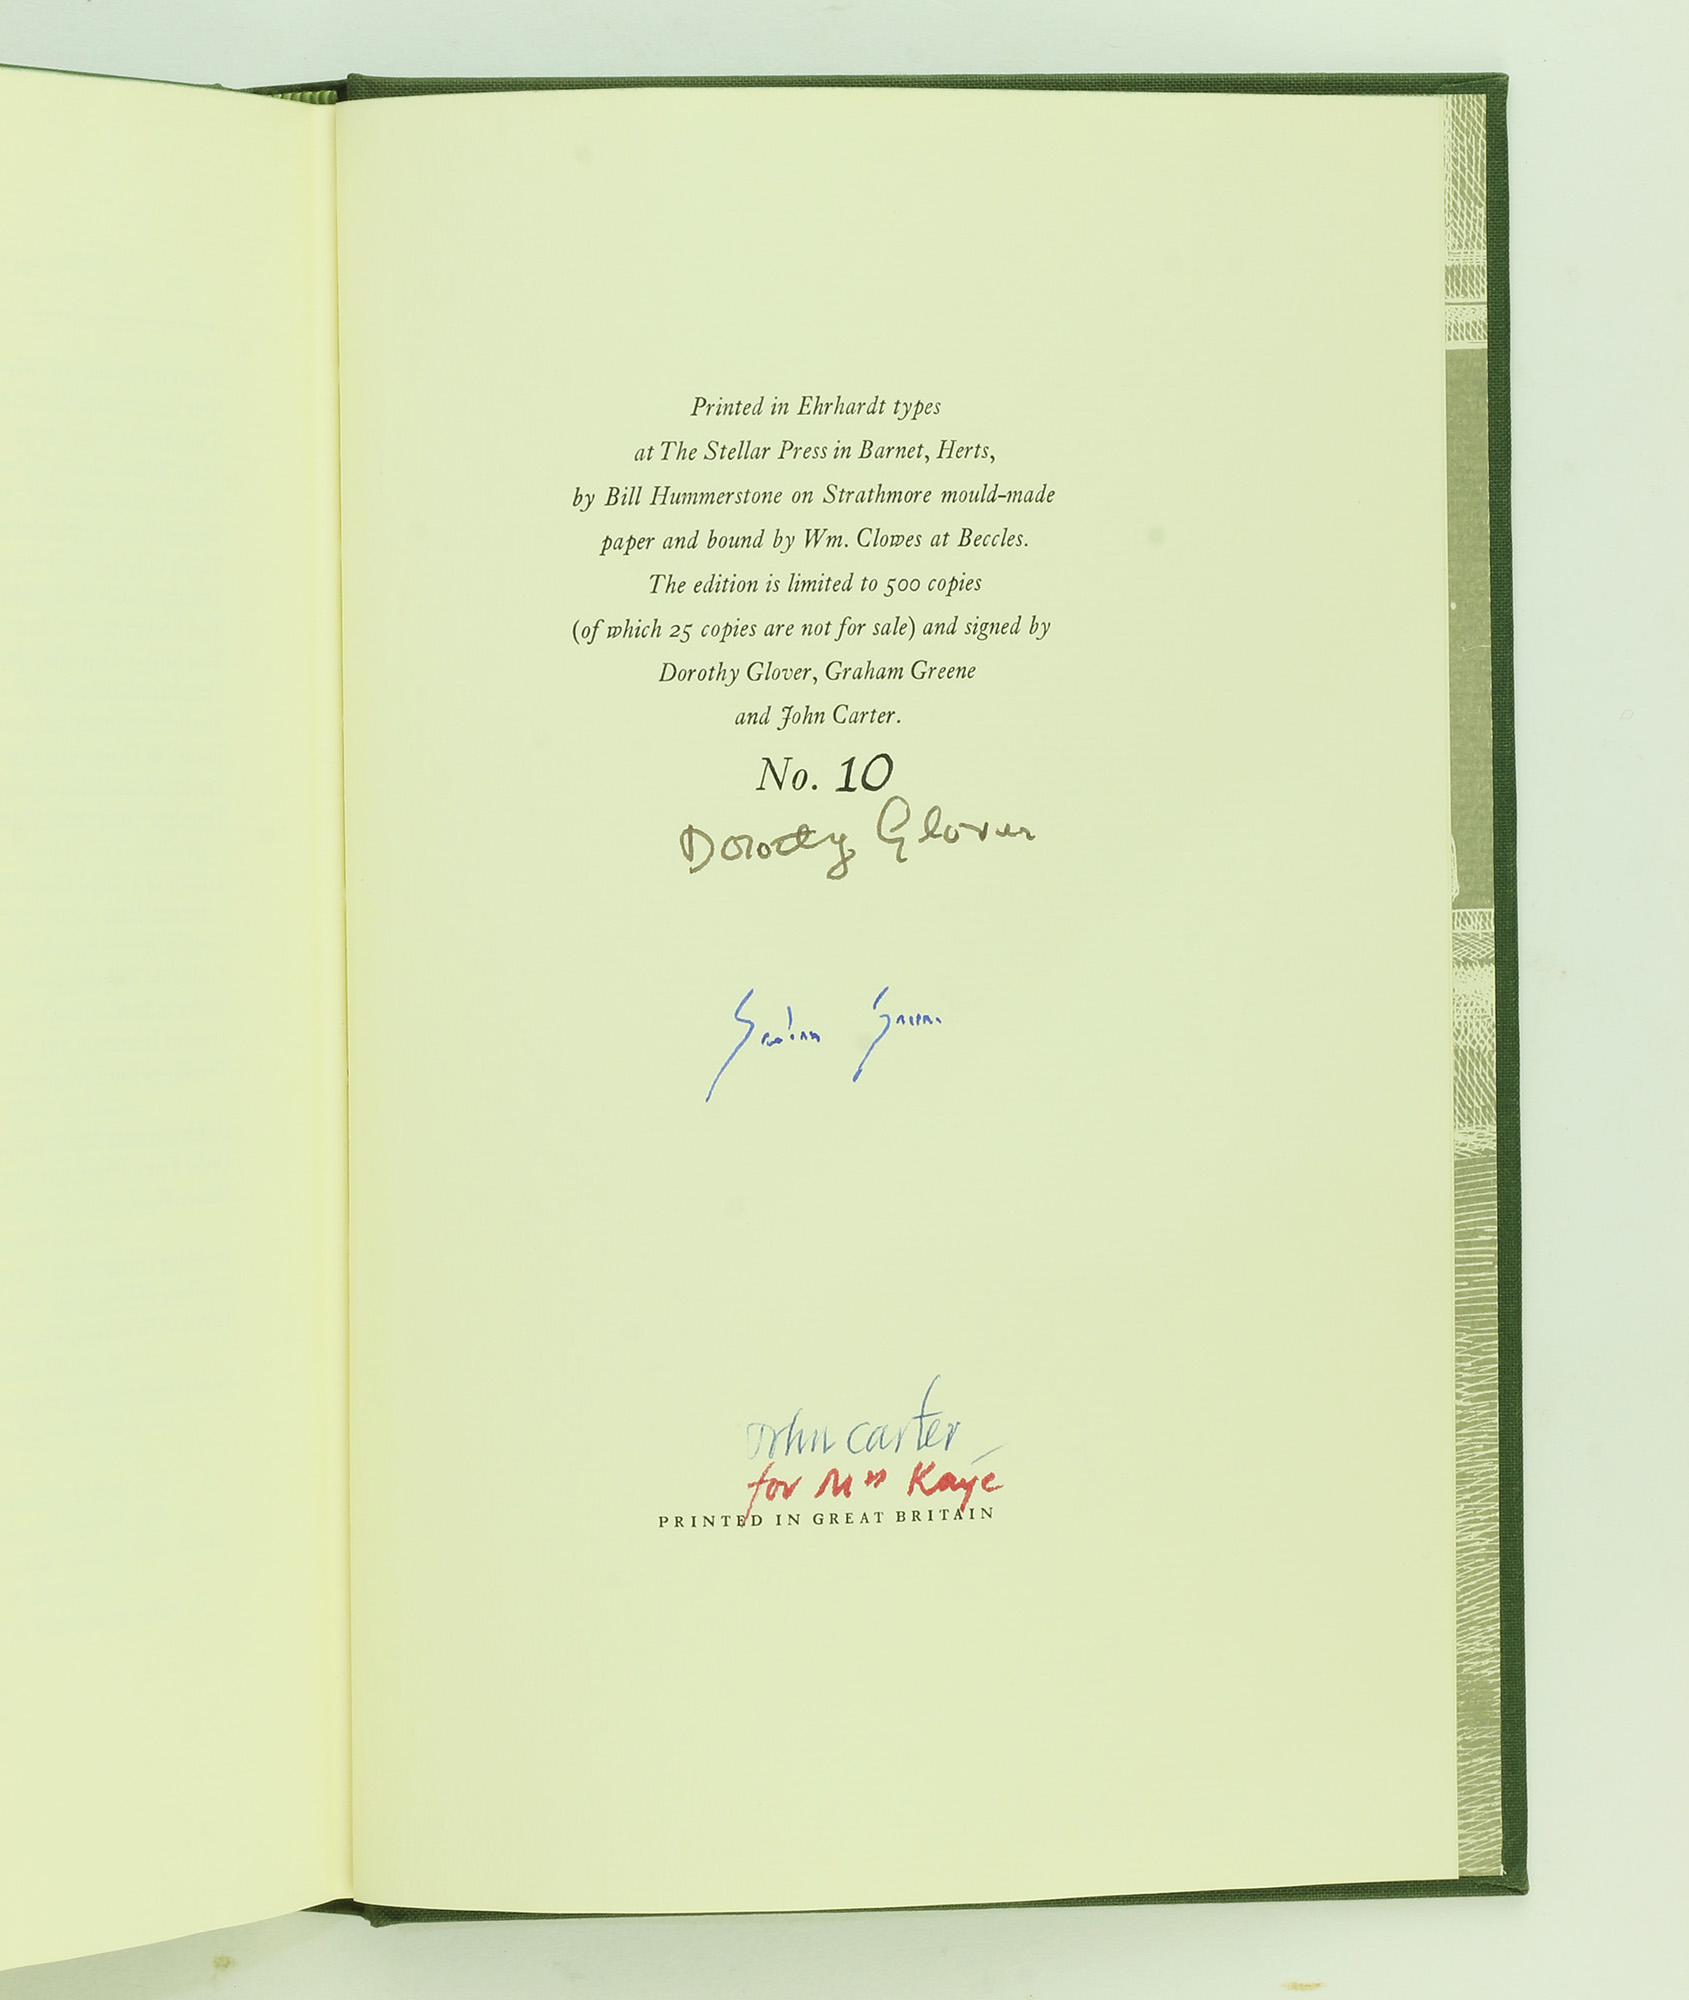 Printed in Ehrhardt types
at The Stellar Press in Barnet, Herts,
by Bill Hummerstone on Strathmore mould-made
paper and bound by Wm. Clowes at Beccles.
The edition is limited to 500 copies
(of which 25 copies are not for sale) and signed by
Dorothy Glover, Graham Greene
and John Carter.
No. 10
Dorothy Glover
Graham Greene
John Carter
for Mrs Kaye
PRINTED IN GREAT BRITAIN